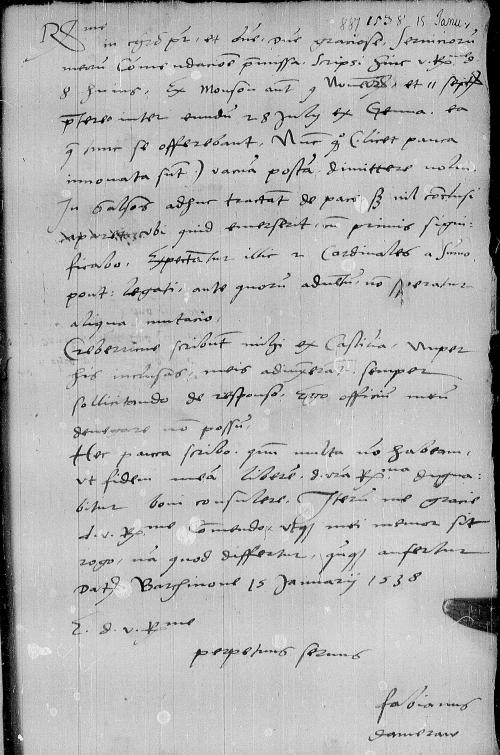 1538 15 Januarij
R^me in chro pr, et dne, dne graciose, servicioru
meru Comendacioe pmissa. Scripsi huic v. R^me
8 huius, Ex Monson ant 9 Novembris, et 11
pterea inter eundu 28 July ex Genua. ea
q nunc se offerebant, Nunc q licet pauca
innovata sunt) vacua posta, dimittere nolui.
In Salsas adhuc tractat de paci sz nil conclusi
ubi quid emerserit, cu primis signi-
ficabo. Expectatur illic 2 Cordinales a Sumo
pont: legati, ante quoru adventu, no speratur
aliqua mutacio.
Creberrime scribunt mihi ex Castilia, nuper
his inclusas, meis adiunxerat semper
sollicitando de responso, Ergo officiu meu
denegare no possu,
Hec pauca scribo. qum multa no habeam,
ut fidem mea libere. d. vra R^ma digna-
bitur boni consulere. Iteru me gracie
d. v. R^me Comendo, utq mei memor sit
rogo, na quod differtur, auffertur
Dat Barchinone 15 Januarij 1538
E. d. v. R^me
perpetuus servus
fabianus
dameraw